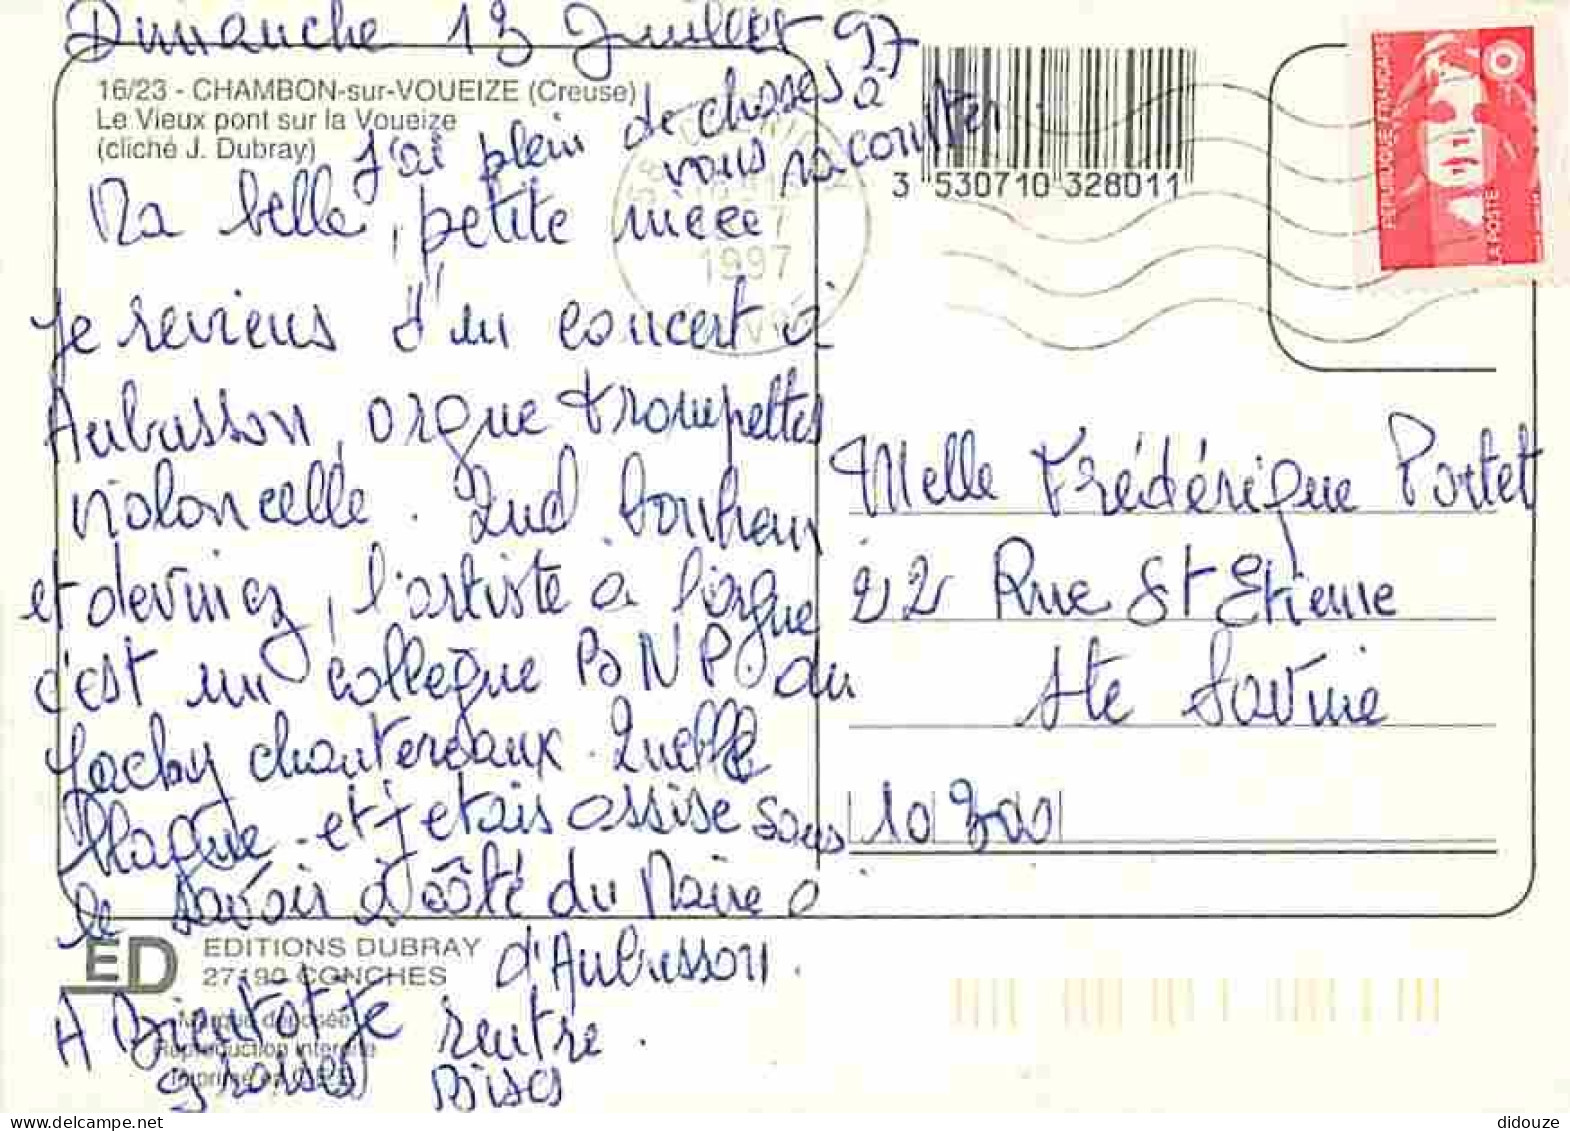 Dimanche 13 Juillet 97
16/23 - CHAMBON-sur-VOUEIZE (Creuse)
Le Vieux pont sur la Voueize
(cliché J. Dubray)
J'ai plein de choses à
vous raconter.
3 530710 328011
1997
REPUBLIQUE FRANÇAISE
LA POSTE
Ma belle, petite nièce
Je reviens d'un concert à
Aubusson, orgue trompettes
violoncelle. Quel bonheur
et devinez, l'artiste à l'orgue
c'est un collègue BNP. du
Jacky chantereaux. Quelle
blague. et j'etais assise sans
le savoir à côté du Maire
d'Aubusson.
A Bientôt Je rentre.
grosses Bises
Melle Frédérique Portet
22 Rue St Etienne
Ste Savine
10 300
ED
EDITIONS DUBRAY
27190 CONCHES
Marque déposée
Reproduction interdite
Imprimé en C.E.E.
didouze